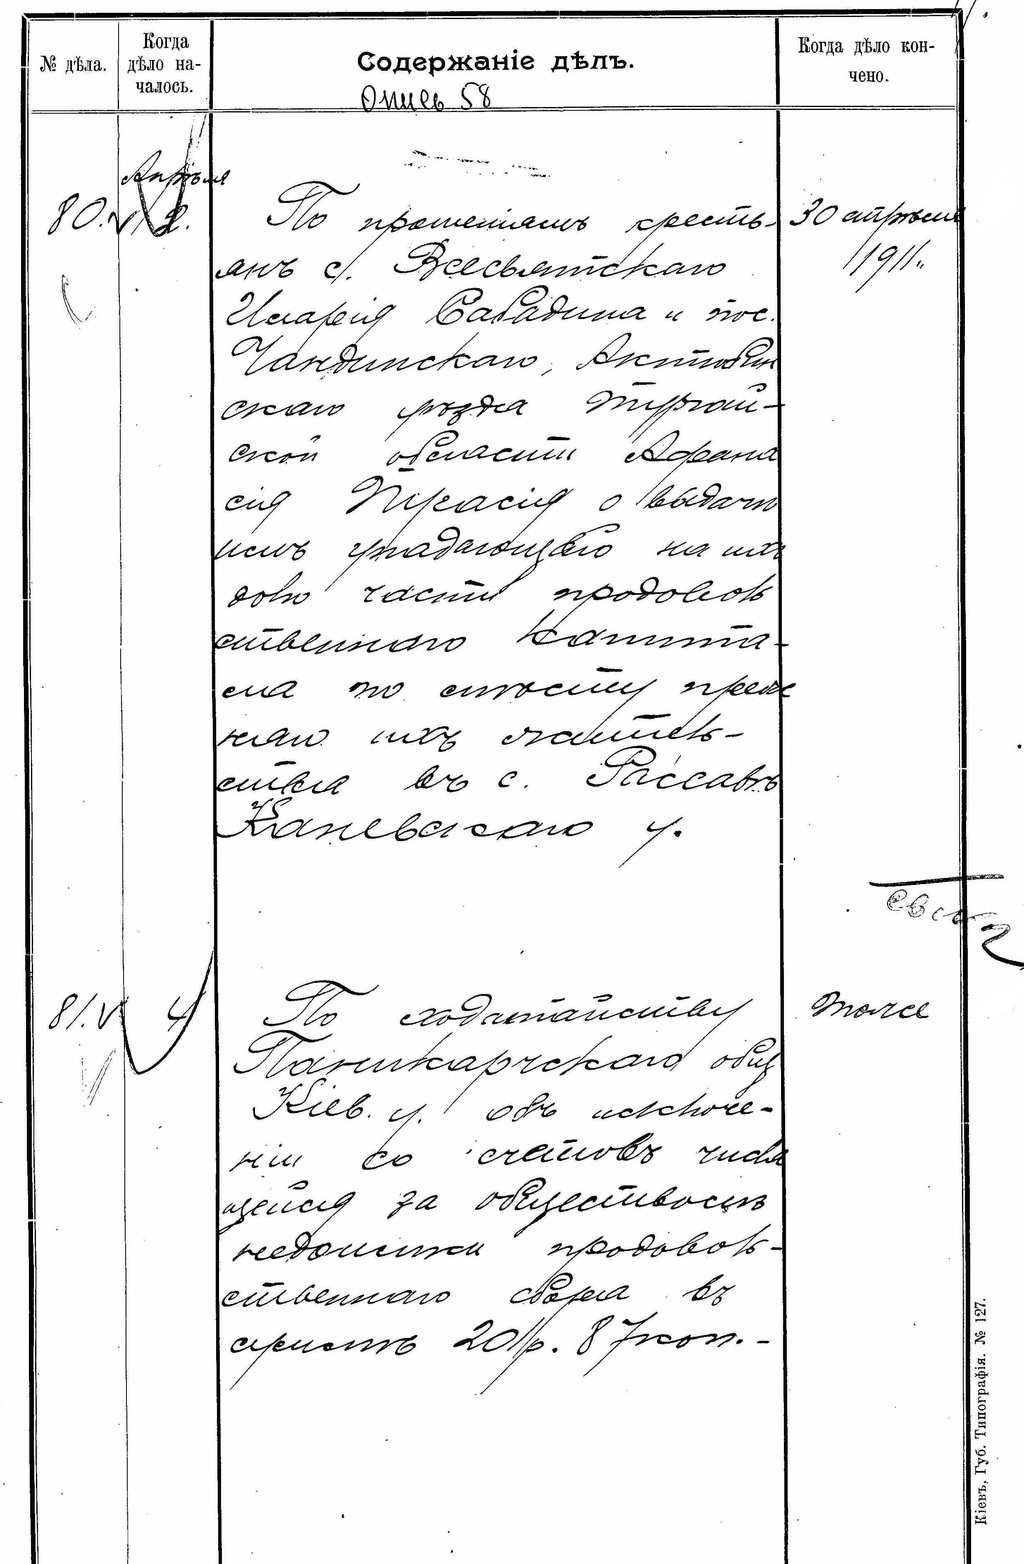 № дѣла.
Когда
дѣло на-
чалось.
Содержаніе дѣлъ.
Когда дѣло кон-
чено.
Опись 58
Апрѣля
80. 2. По прошеніямъ кресть- 30 апрѣля
янъ с. Всесвятскаго 1911.
Иларія Сабадина и пос.
Чандинскаго, Актюбин
скаго уѣзда Тургай-
ской области Афана
сія Прасія о выдачѣ
имъ упадающей на ихъ
долю части продоволь
ственнаго капита-
ла по мѣсту преж
няго ихъ житель-
ства въ с. Россавѣ
Каневскаго у.
81. 4 По ходатайству тоже
Паникарчскаго общ
Кіев. у. объ исключе-
ніи со счетовъ числя
щейся за обществомъ
недоимки продоволь-
ственнаго сбора въ
суммѣ 201 р. 87 коп.-
Кіевъ, Губ. Типографія. № 127.